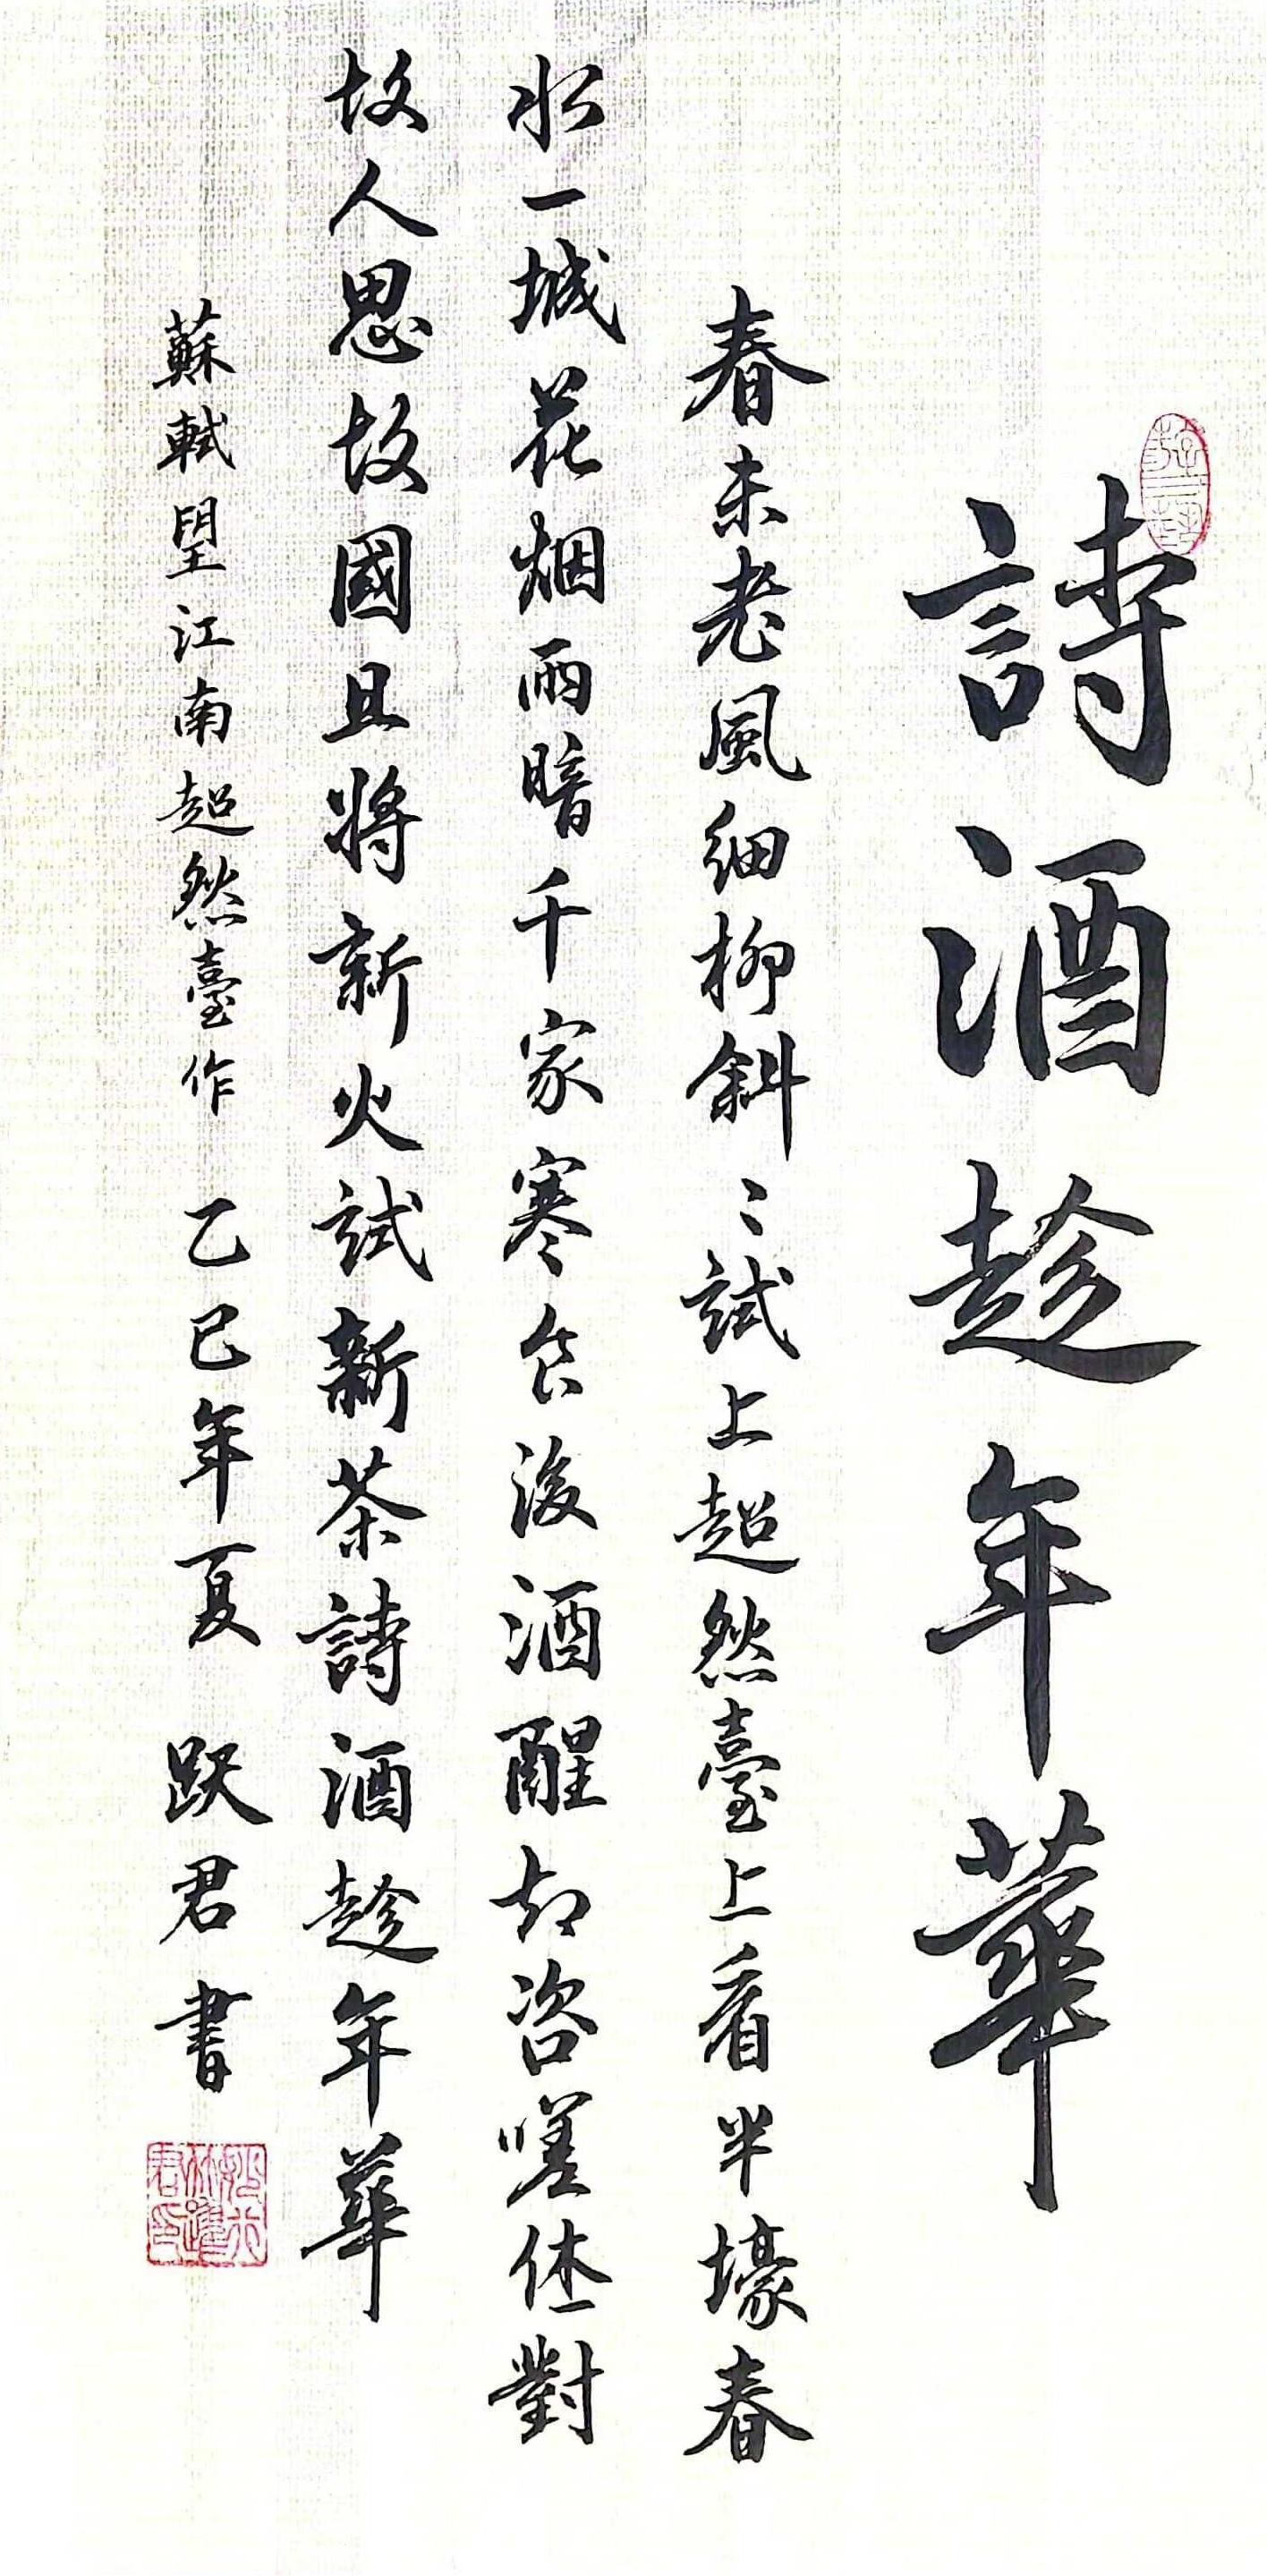 詩酒趁年華
春未老風細柳斜〻試上超然臺上看半壕春
水一城花烟雨暗千家寒食後酒醒却咨嗟休對
故人思故國且將新火試新茶詩酒趁年華
蘇軾望江南超然臺作 乙巳年夏 跃君書